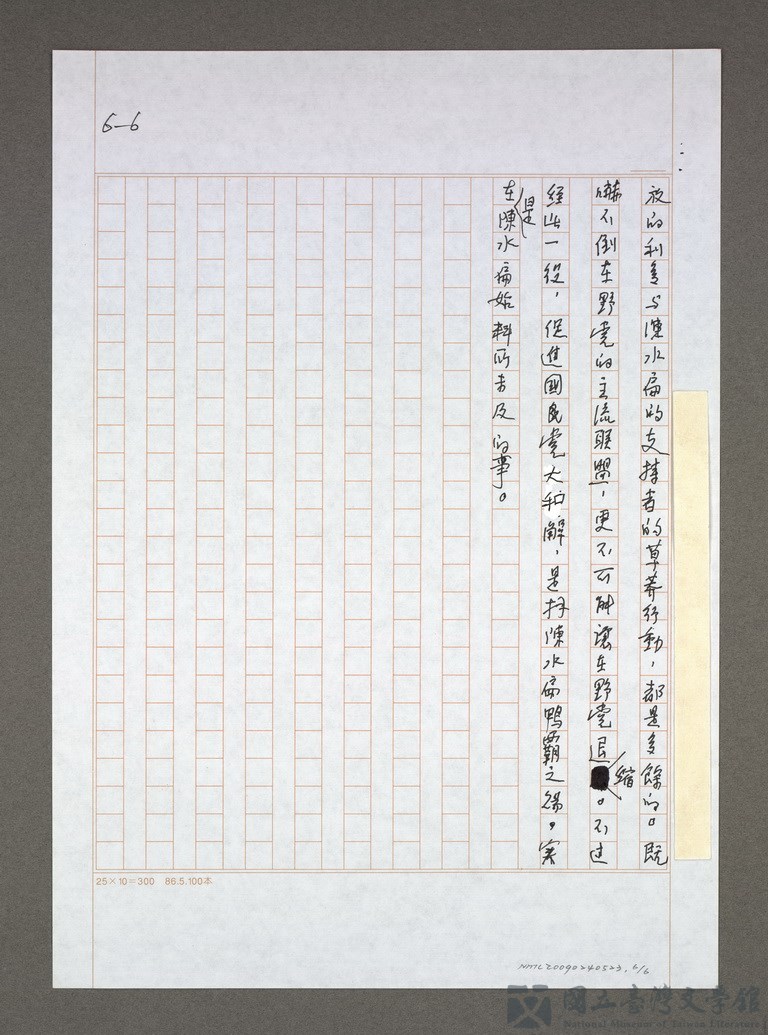 6-6
夜的利多与陳水扁的支持者的草莽行動，都是多餘的。既
嚇不倒在野党的主流联盟，更不可能讓在野党退縮。不过
經此一役，促進國民党大和解，是拜陳水扁鴨霸之賜。实
在是陳水扁始料所未及的事。
25×10=300 86.5.100本
NMTL20090240523, 6/6
國立臺灣文學館
National Museum of Taiwan Literature